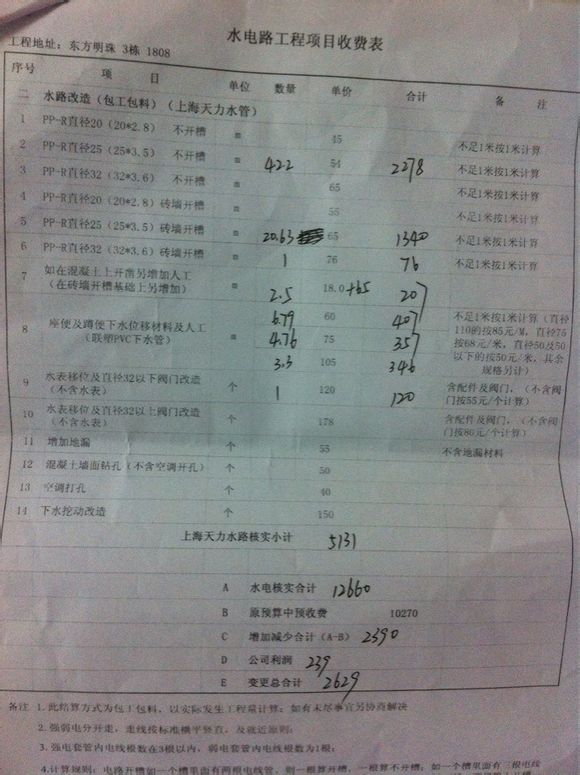 水电路工程项目收费表
工程地址：东方明珠 3栋 1808
序号 项 目 单位 数量 单价 合计 备 注
二 水路改造（包工包料）（上海天力水管）
1 PP-R直径20（20*2.8） 不开槽 m 45 不足1米按1米计算
2 PP-R直径25（25*3.5） 不开槽 m 42.2 54 2278 不足1米按1米计算
3 PP-R直径32（32*3.6） 不开槽 m 65 不足1米按1米计算
4 PP-R直径20（20*2.8）砖墙开槽 m 55 不足1米按1米计算
5 PP-R直径25（25*3.5）砖墙开槽 m 20.63 65 1340 不足1米按1米计算
6 PP-R直径32（32*3.6）砖墙开槽 m 1 76 76 不足1米按1米计算
7 如在混凝土上开凿另增加人工 m 2.5 18.0+65 207
（在砖墙开槽基础上另增加）
8 座便及蹲便下水位移材料及人工 m 6.79 60 407 不足1米按1米计算（直径
（联塑PVC下水管） 4.76 75 357 110的按85元/M，直径75
3.3 105 346 按68元/米，直径50及50
以下的按50元/米，其余
规格另计）
9 水表移位及直径32以下阀门改造 个 1 120 120 含配件及阀门，（不含阀
（不含水表） 门按55元/个计算）
10 水表移位及直径32以上阀门改造 个 178 含配件及阀门，（不含阀
（不含水表） 门按80元/个计算）
11 增加地漏 个 55 不含地漏材料
12 混凝土墙面钻孔（不含空调开孔） 个 50
13 空调打孔 个 40
14 下水挖动改造 个 150
上海天力水路核实小计 5131
A 水电核实合计 12660
B 原预算中预收费 10270
C 增加减少合计（A-B） 2390
D 公司利润 239
E 变更总合计 2629
备注 1.此结算方式为包工包料，以实际发生工程量计算；如有未尽事宜另协商解决
2. 强弱电分开走，走线按标准横平竖直，及就近原则；
3. 强电套管内电线根数在3根以内，弱电套管内电线根数为1根；
4.计算规则：电路开槽如一个槽里面有两根电线管，则一根算开槽，一根算不开槽；如一个槽里面有三根电线